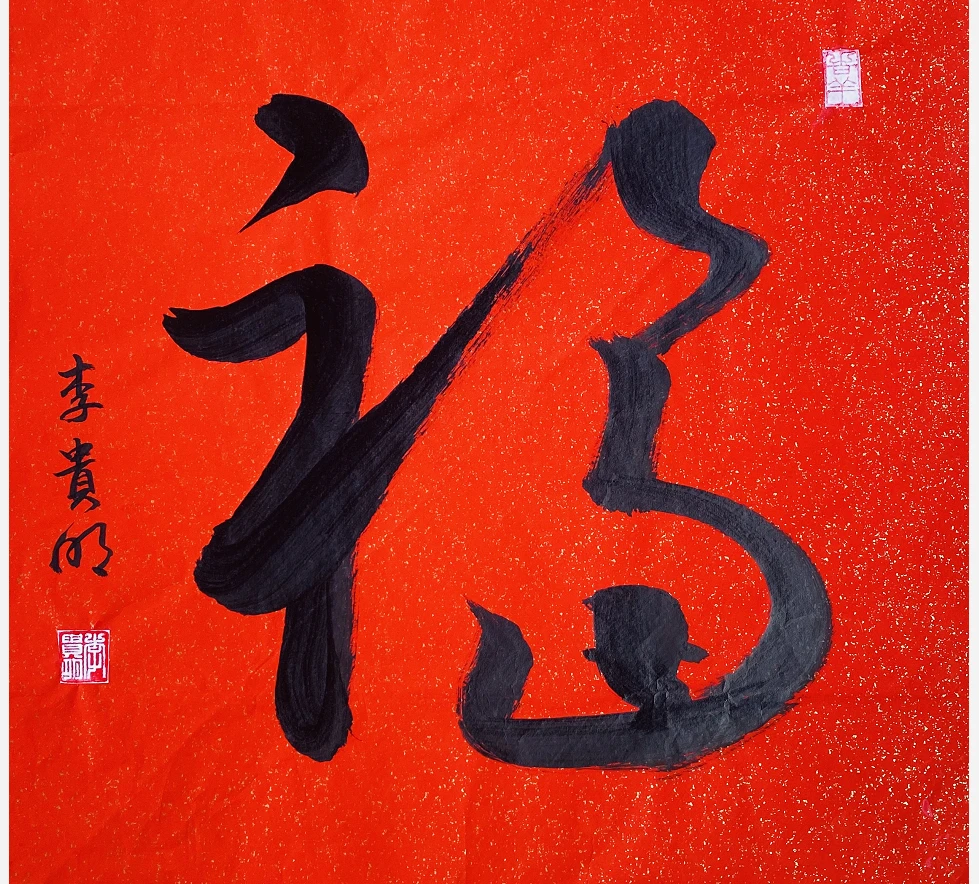 福
李貴明